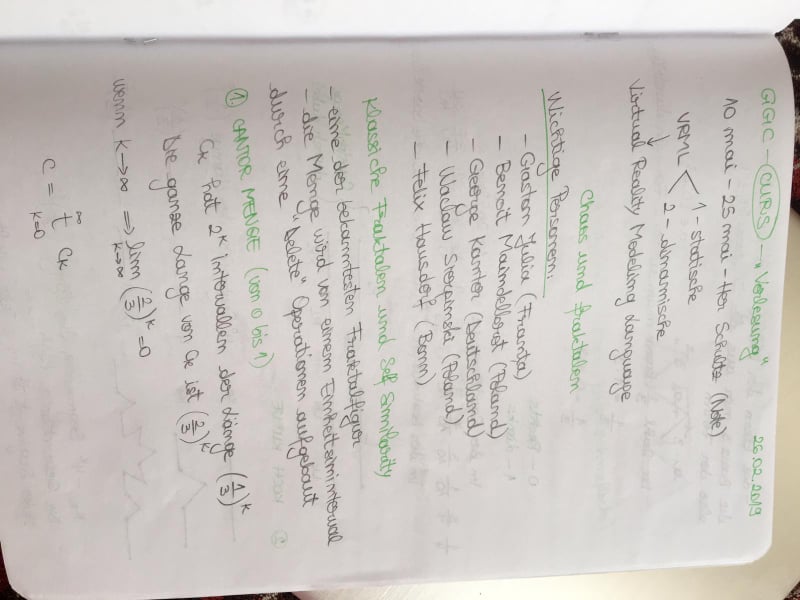 GGC - CURS - "Vorlesung" 26.02.2019
10 mai - 25 mai - Herr Schultz (Note)
VRML < 1 - statische
2 - dinamische
Virtual Reality Modeling Language
Chaos und fraktalen
Wichtige Personen:
- Gaston Julia (Franța)
- Benoit Maimdellbrot (Poland)
- George Kantor (Deutschland)
- Waclaw Sierpimski (Poland)
- Felix Hausdorf (Bonn)
Klassiche Fraktalen und Self Similarity
- eine der bekanntesten Fraktalfigur
- die Menge wird von einem Einheitsiminterval
durch eine "Delete" Operationen aufgebaut
① CANTOR MENGE (von 0 bis 1)
Ck hat 2^k Intervallen der Länge (1/3)^k
Die ganze Länge von Ck ist (2/3)^k
wenn k→∞ ⇒ lim k→∞ (2/3)^k = 0
C = ∞ t k=0 Ck